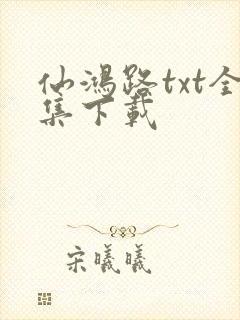 仙鸿路txt全
集下载
宋曦曦